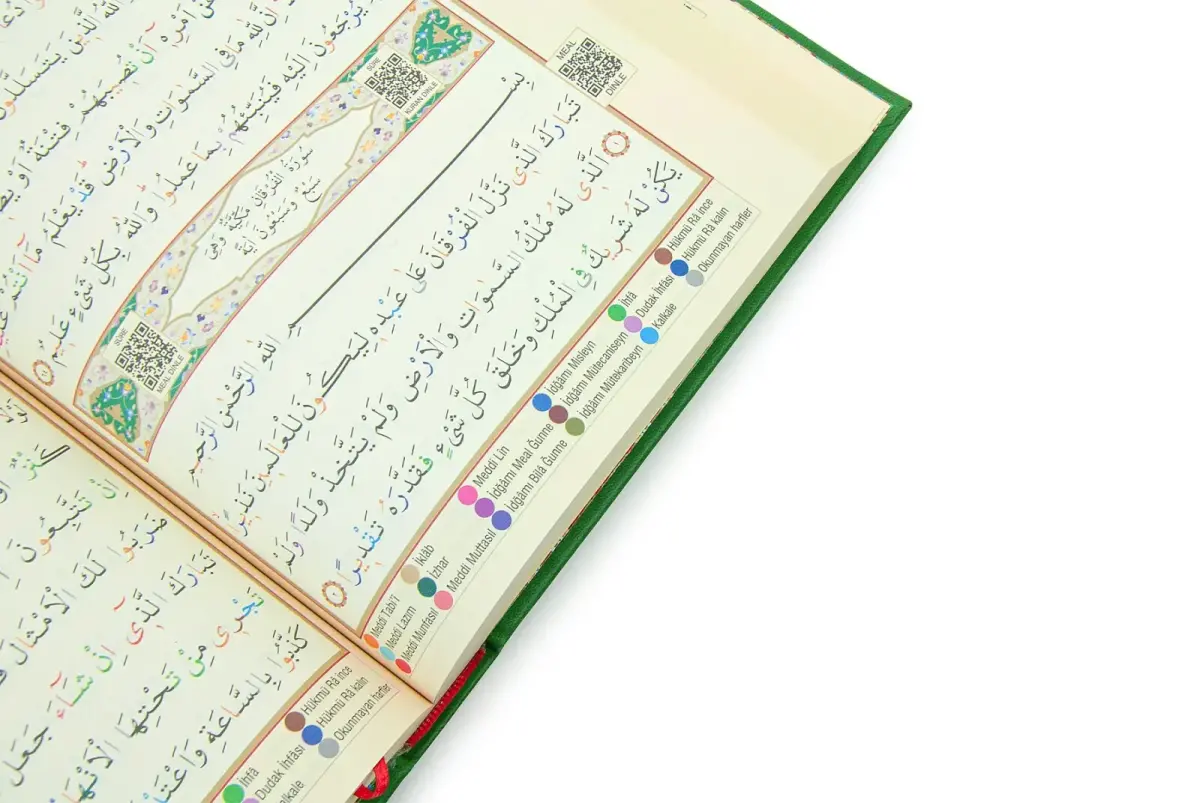 اللّٰهُ الَّذ۪ينَ يَتَسَلَّلُونَ
عَنْ اَمْرِه۪ٓ اَنْ تُص۪يبَهُمْ فِتْنَةٌ اَوْ
اِنَّ لِلّٰهِ مَا فِي السَّمٰوَاتِ وَالْاَرْضِ قَدْ يَعْلَمُ مَٓا اَنْتُمْ
يُرْجَعُونَ اِلَيْهِ فَيُنَبِّئُهُمْ بِمَا عَمِلُوا وَاللّٰهُ بِكُلِّ شَيْءٍ عَل۪يمٌ
SÛRE
KURAN DİNLE
سُورَةُ الْفُرْقَانِ مَكِّيَّةٌ وَهِيَ
سَبْعٌ وَسَبْعُونَ اٰيَةً
SÛRE
MEAL DİNLE
MEAL
DİNLE
بِسْمِ اللّٰهِ الرَّحْمٰنِ الرَّح۪يمِ
تَبَارَكَ الَّذ۪ي نَزَّلَ الْفُرْقَانَ عَلٰى عَبْدِه۪ لِيَكُونَ لِلْعَالَم۪ينَ نَذ۪يرًا
١ اَلَّذ۪ي لَهُ مُلْكُ السَّمٰوَاتِ وَالْاَرْضِ وَلَمْ يَتَّخِذْ وَلَدًا وَلَمْ
يَكُنْ لَهُ شَر۪يكٌ فِي الْمُلْكِ وَخَلَقَ كُلَّ شَيْءٍ فَقَدَّرَهُ تَقْد۪يرًا ٢
Meddi Tabi'î
Meddi Lazım
Meddi Munfasıl
İklâb
İzhar
Meddi Muttasıl
Meddi Lîn
İdğâmı Meal Ğunne
İdğâmı Bilâ Ğunne
İdğâmı Misleyn
İdğâmı Mütecaniseyn
İdğâmı Mütekaribeyn
İhfâ
Dudak İhfâsı
Kalkale
Hükmü Râ ince
Hükmü Râ kalın
Okunmayan harfler
كَنْزٌ اَوْ
اِنْ تَتَّبِعُونَ
ضَرَبُوا لَكَ الْاَمْثَالَ
تَبَارَكَ الَّذ۪ٓي اِنْ شَٓاءَ جَعَلَ
تَجْر۪ي مِنْ تَحْتِهَا الْاَنْهَا
كَذَّبُوا بِالسَّاعَةِ وَاَعْتَدْ
İhfâ
Dudak İhfâsı
Kalkale
Hükmü Râ ince
Hükmü Râ kalın
Okunmayan harfler